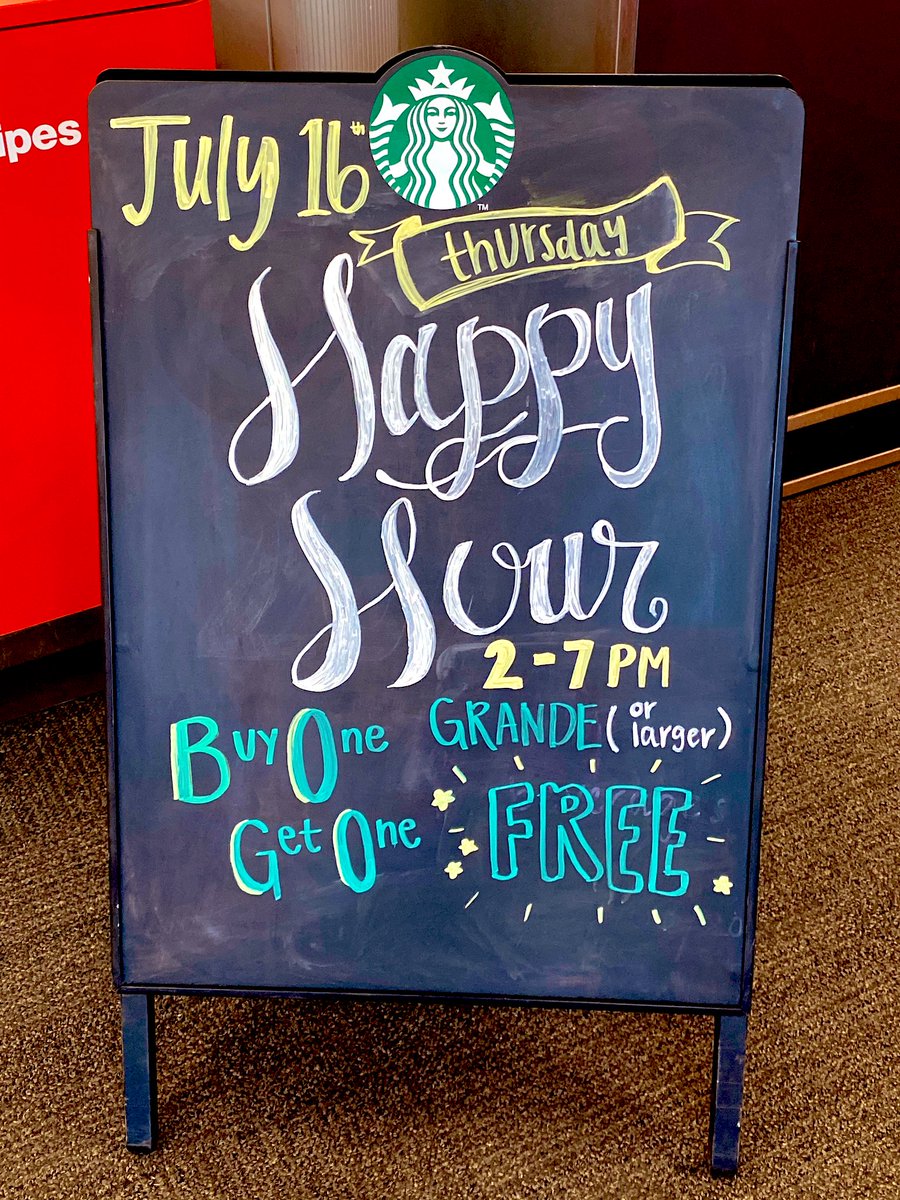 ipes
July 16th
TM
thursday
Happy
Hour
2-7 PM
Buy One GRANDE (or larger)
Get One FREE